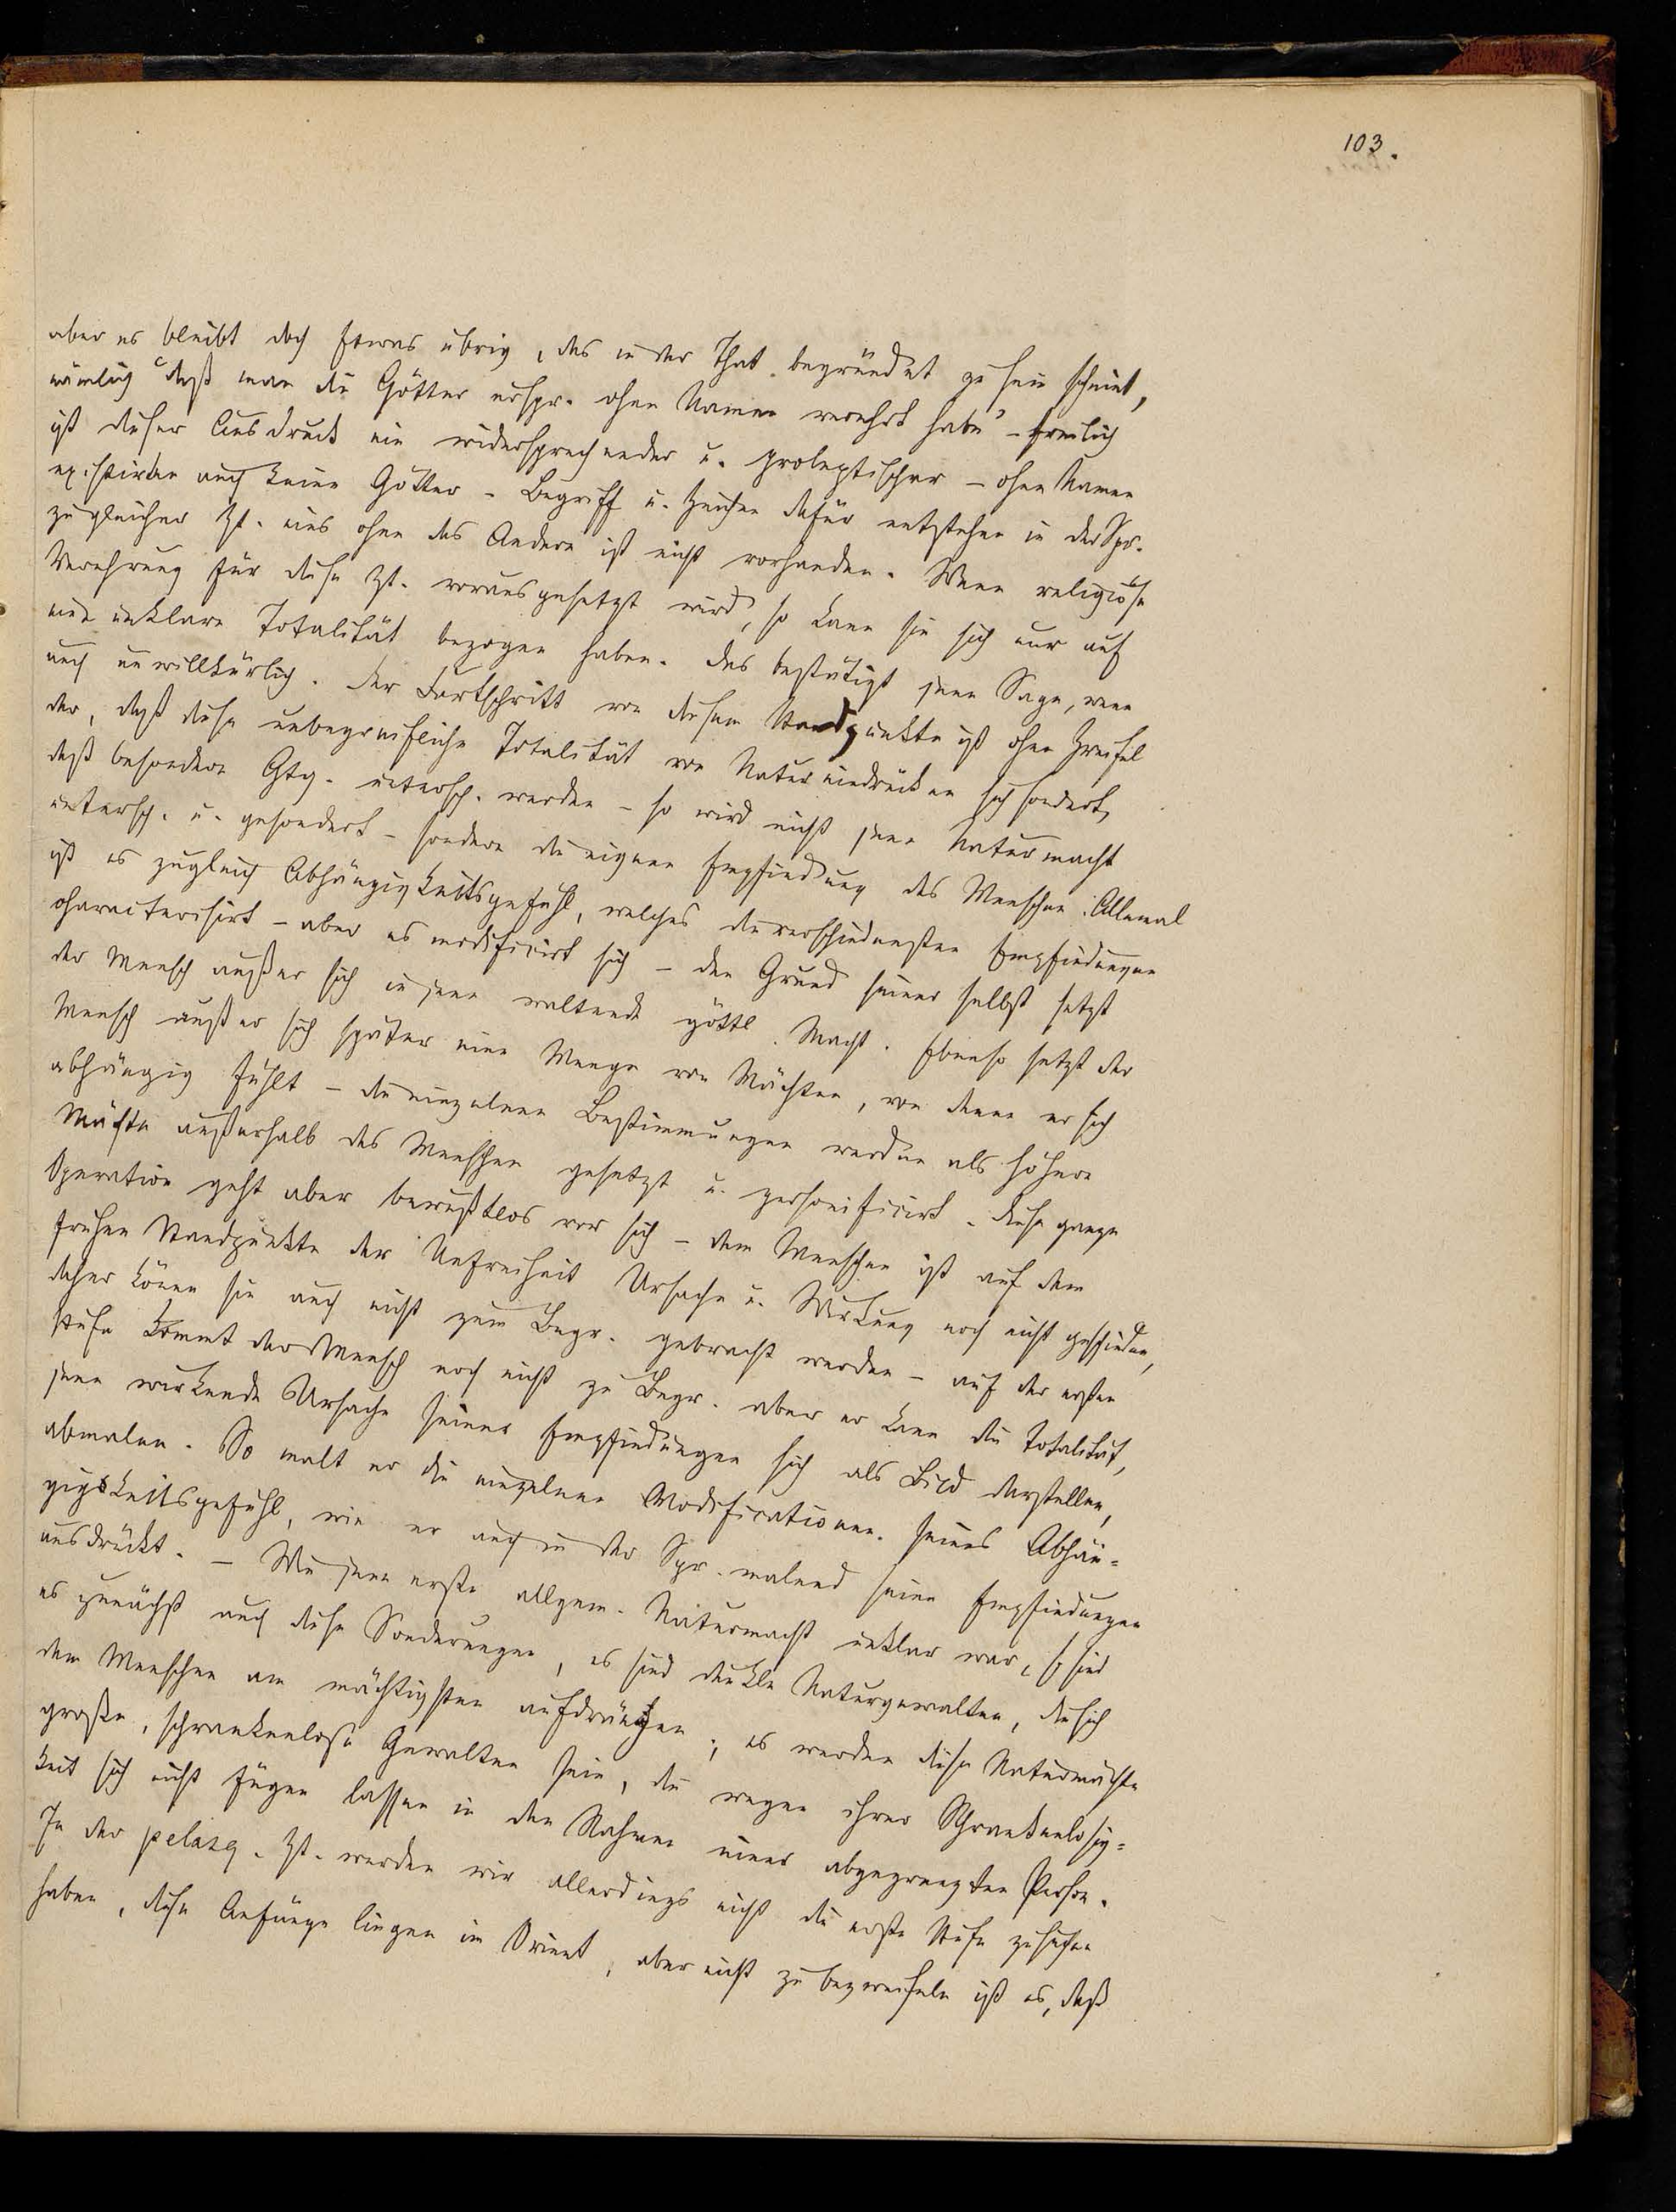 103.
aber es bleibt doch Etwas übrig, das in der That begründet zu sein scheint,
nämlich „daß man die Götter urspr. ohne Namen verehrt habe“ – freilich
ist dieser Ausdruck ein widersprechender u. proleptischer – ohne Namen
existirten auch keine Götter – Begriff u. Zeichen dafür entstehen in der Spr.
zu gleicher Zt. eins ohne das Andere ist nicht vorhanden. Wenn religiöse
Verehrung für diese Zt. vorausgesetzt wird, so kann sie sich nur auf
eine unklare Totalität bezogen haben. Das bestätigt jene Sage, wenn
auch unwillkürlich. Der Fortschritt von diesem Standpunkte ist ohne Zweifel
der, daß diese unbegreifliche Totalität von Natureindrücken sich sondert,
daß besondere Gtg. untersch. werden – so wird nicht jene Naturmacht
untersch. u. gesondert – sondern die eignen Empfindung des Menschen. Allemal
ist es zugleich Abhängigkeitsgefühl, welches die verschiedensten Empfindungen
characterisirt – aber es modificirt sich – den Grund seiner selbst setzt
der Mensch außer sich in jene waltende göttl. Macht. Ebenso setzt der
Mensch außer sich später eine Menge von Mächten, von denen er sich
abhängig fühlt – die einzelnen Bestimmungen werden als höhere
Mächte außerhalb des Menschen gesetzt u. personificirt. Diese ganze
Operation geht aber bewußtlos vor sich – dem Menschen ist auf dem
frühen Standpunkte der Unfreiheit Ursache u. Wirkung noch nicht geschieden,
daher könen sie auch nicht zum Begr. gebracht werden – auf der ersten
Stufe kommt der Mensch noch nicht zu Begr. aber er kann die Totalität,
jene wirkende Ursache seiner Empfindungen sich als Bild darstellen,
abmalen. So malt er die einzelnen Modificationen seines Abhän-
gigkeitsgefühl, wie er auch in der Spr. malend seine Empfindungen
ausdrückt. – Wie jene erste allgem. Naturmacht unklar war, so sind
es zunächst auch diese Sonderungen, es sind dunkle Naturgewalten, die sich
dem Menschen am mächtigsten aufdrängen; es werden diese Naturmächte
große, schrankenlose Gewalten sein, die wegen ihrer Schrankenlosig-
keit sich nicht fügen lassen in den Rahmen einer abgegrenzten Person.
In der pelasg. Zt. werden wir allerdings nicht die erste Stufe zu suchen
haben, diese Anfänge liegen im Orient, aber nicht zu bezweifeln ist es, daß